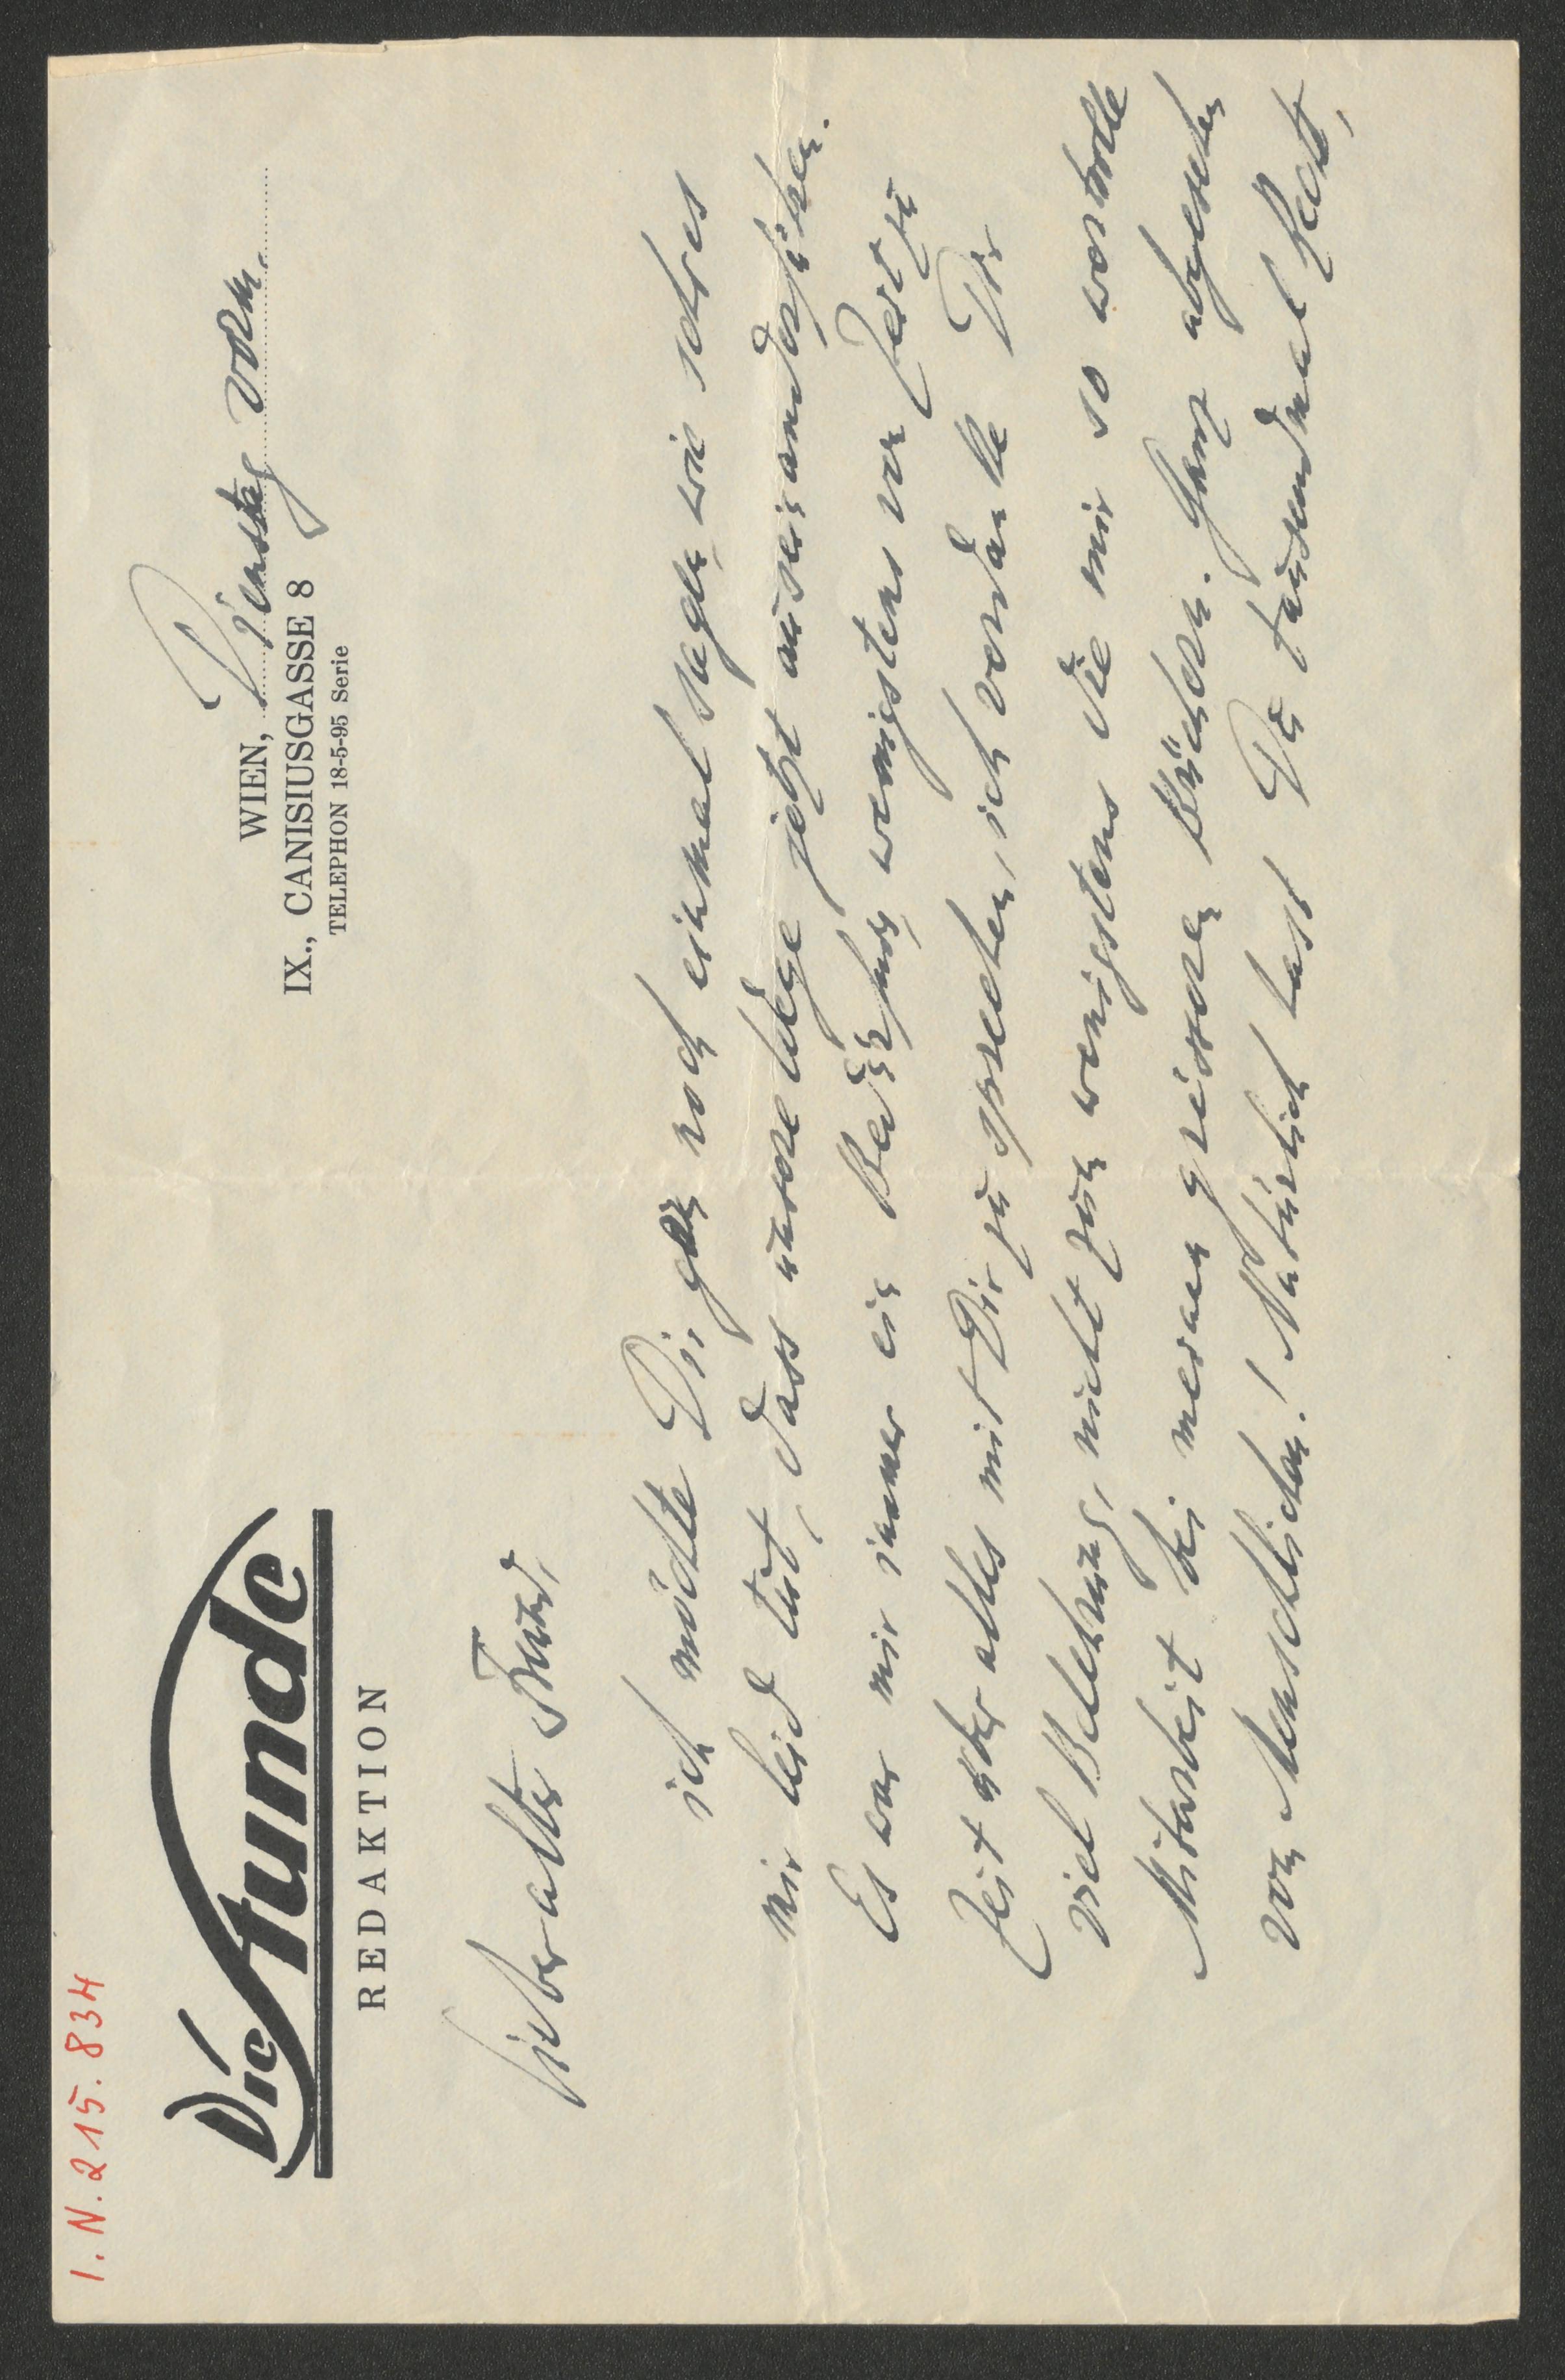 I. N. 215.834
Die Stunde
REDAKTION
WIEN, Dienstag vorm.
IX., CANISIUSGASSE 8
TELEPHON 18-5-95 Serie
Lieber alter Freund,
ich möchte Dir noch einmal sagen, wie sehr es
mir leid tut, dass unsere Wege jetzt auseinandergehen.
Es war mir immer ein Bedürfnis, wenigstens von Zeit zu
Zeit über alles mit Dir zu sprechen, ich verdanke Dir
viel Belehrung, nicht zum wenigsten die mir so wertvolle
Mitarbeit bei meinen grösseren Büchern. Ganz abgesehen
vom Menschlichen! Natürlich hast Du tausendmal Recht,